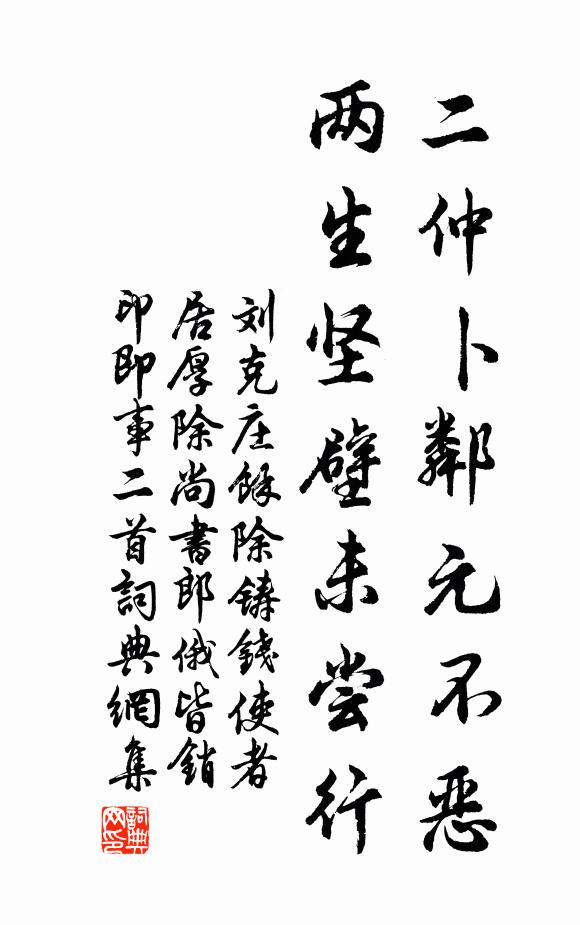 二仲卜鄰元不恶
两生坚壁未尝行
刘克庄馀除鑄錢使者
居厚除尚書郎俄皆銷
印即事二首詞典網集
詞典网印